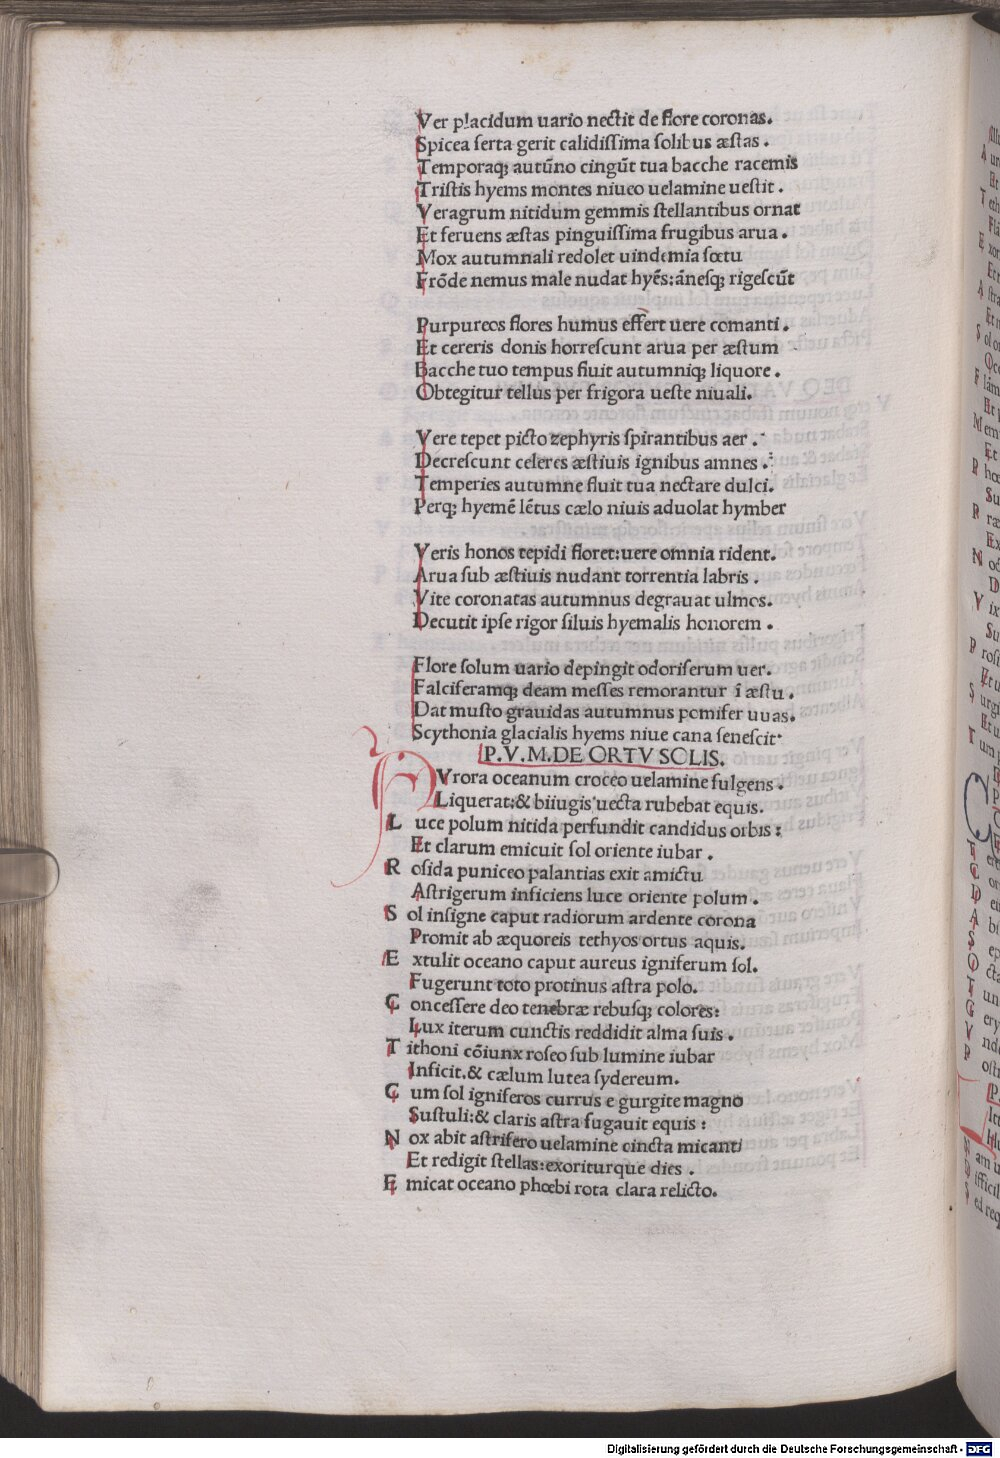 Ver placidum uario nectit de flore coronas.
Spicea ſerta gerit calidiſſima ſolibus æſtas.
Temporaq; autūno cingūt tua bacche racemis
Triſtis hyems montes niueo uelamine ueſtit.
Veragrum nitidum gemmis ſtellantibus ornat
Et feruens æſtas pinguiſſima frugibus arua.
Mox autumnali redolet uindemia fœtu
Frōde nemus male nudat hyēs: āneſq; rigeſcūt
Purpureos flores humus effert uere comanti.
Et cereris donis horreſcunt arua per æſtum
Bacche tuo tempus fiuit autumniq; liquore.
Obtegitur tellus per frigora ueſte niuali.
Vere tepet picto zephyris ſpirantibus aer.
Decreſcunt celeres æſtiuis ignibus amnes.
Temperies autumne fluit tua nectare dulci.
Perq; hyemē lētus cælo niuis aduolat hymber
Veris honos tepidi floret: uere omnia rident.
Arua ſub æſtiuis nudant torrentia labris.
Vite coronatas autumnus degrauat ulmos.
Decutit ipſe rigor ſiluis hyemalis honorem.
Flore ſolum uario depingit odoriferum uer.
Falciferamq; deam meſſes remorantur ī æſtu.
Dat muſto grauidas autumnus pomifer uuas.
Scythonia glacialis hyems niue cana ſeneſcit
P. V. M. DE ORTV SOLIS.
AVrora oceanum croceo uelamine fulgens.
Liquerat: & biiugis uecta rubebat equis.
L uce polum nitida perfundit candidus orbis:
Et clarum emicuit ſol oriente iubar.
R oſida puniceo palantias exit amictu
Aſtrigerum inficiens luce oriente polum.
S ol inſigne caput radiorum ardente corona
Promit ab æquoreis tethyos ortus aquis.
E xtulit oceano caput aureus igniferum ſol.
Fugerunt toto protinus aſtra polo.
C onceſſere deo tenebræ rebuſq; colores:
Lux iterum cunctis reddidit alma ſuis.
T ithoni cōiunx roſeo ſub lumine iubar
Inficit. & cælum lutea ſydereum.
C um ſol igniferos currus e gurgite magno
Suſtuli: & claris aſtra fugauit equis:
N ox abit aſtrifero uelamine cincta micanti
Et redigit ſtellas: exoriturque dies.
E micat oceano phœbi rota clara relicto.
Digitalisierung gefördert durch die Deutsche Forschungsgemeinschaft - DFG